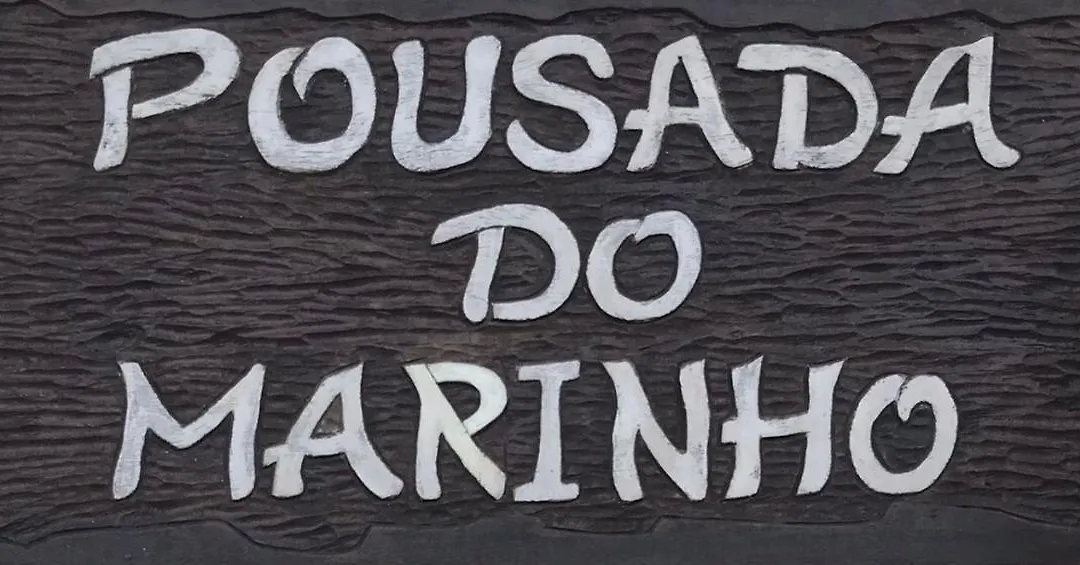 POUSADA
DO
MARINHO